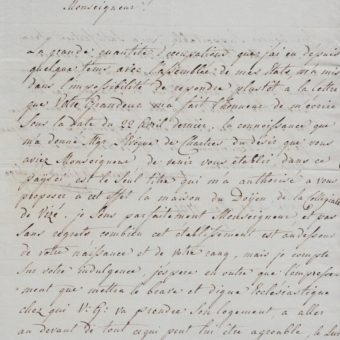 Monseigneur!
La grande quantité d'occupations que j'ai eu depuis
quelque tems avec l'assemblée de mes Etats m'a mis
dans l'impossibilité de repondre plustot a la lettre
que Votre Grandeur m'a fait l'honneur de m'ecrire
sous la date du 22 Avril dernier, la connoissance que
m'a donné Mgr. Eveque de Chartres du desir que vous
aviez Monseigneur de venir vous etablir dans ce
pays ci est le seul titre qui m'a authorisé a vous
proposer a cet effet la maison du Dojen de la collegiale
de Vizé. je sens parfaitement Monseigneur et pas
sans regrets combien cet etablissement est audessous
de votre naissance et de votre rang, mais je compte
sur votre Indulgence, j'espere en outre que l'empresse
ment que mettra le brave et digne Ecclesiastique
chez qui V: G: va prendre son logement, a aller
au devant de tout ce qui peut lui être agreable, a sur